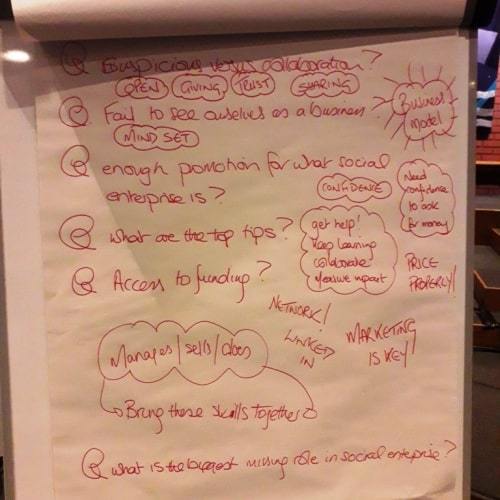 Q Suspicious versus collaboration?
OPEN GIVING TRUST SHARING
Q Fail to see ourselves as a business?
MIND SET
Business
model
Q enough promotion for what social
enterprise is?
CONFIDENCE
Need
confidence
to ask
for money
Q What are the top tips?
get help!
Keep learning
collaborate
Measure impact
Q Access to funding?
PRICE
PROPERLY!
NETWORK!
LINKED
IN
MARKETING
IS KEY!
Manages/sells/does
Bring these skills together
Q what is the biggest missing role in social enterprise?